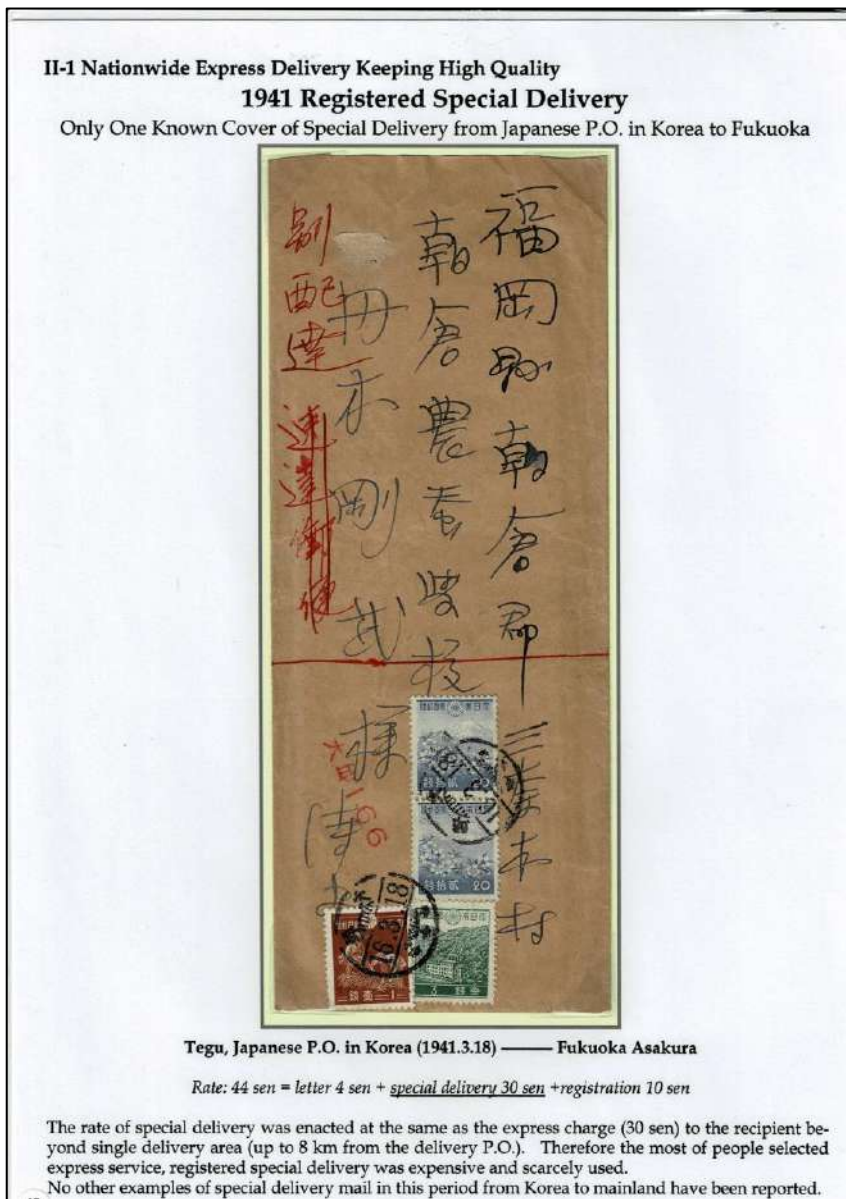 II-1 Nationwide Express Delivery Keeping High Quality
1941 Registered Special Delivery
Only One Known Cover of Special Delivery from Japanese P.O. in Korea to Fukuoka
福岡県朝倉郡三奈木村
朝倉農蚕学校
木剛武様
別配達 速達郵便
166
20
20
16.3.18
Tegu, Japanese P.O. in Korea (1941.3.18) —— Fukuoka Asakura
Rate: 44 sen = letter 4 sen + special delivery 30 sen +registration 10 sen
The rate of special delivery was enacted at the same as the express charge (30 sen) to the recipient be-
yond single delivery area (up to 8 km from the delivery P.O.). Therefore the most of people selected
express service, registered special delivery was expensive and scarcely used.
No other examples of special delivery mail in this period from Korea to mainland have been reported.